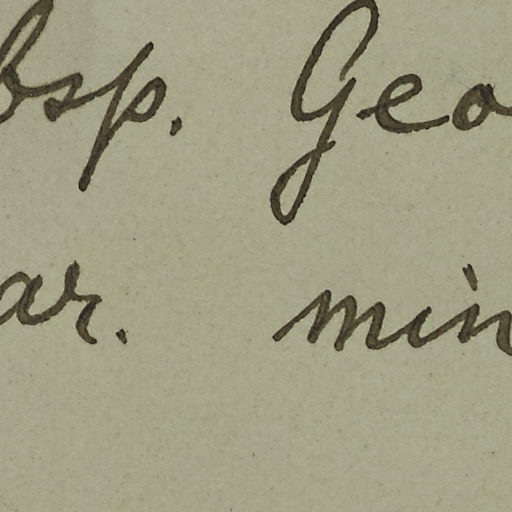 bsp. Geo
ar. min